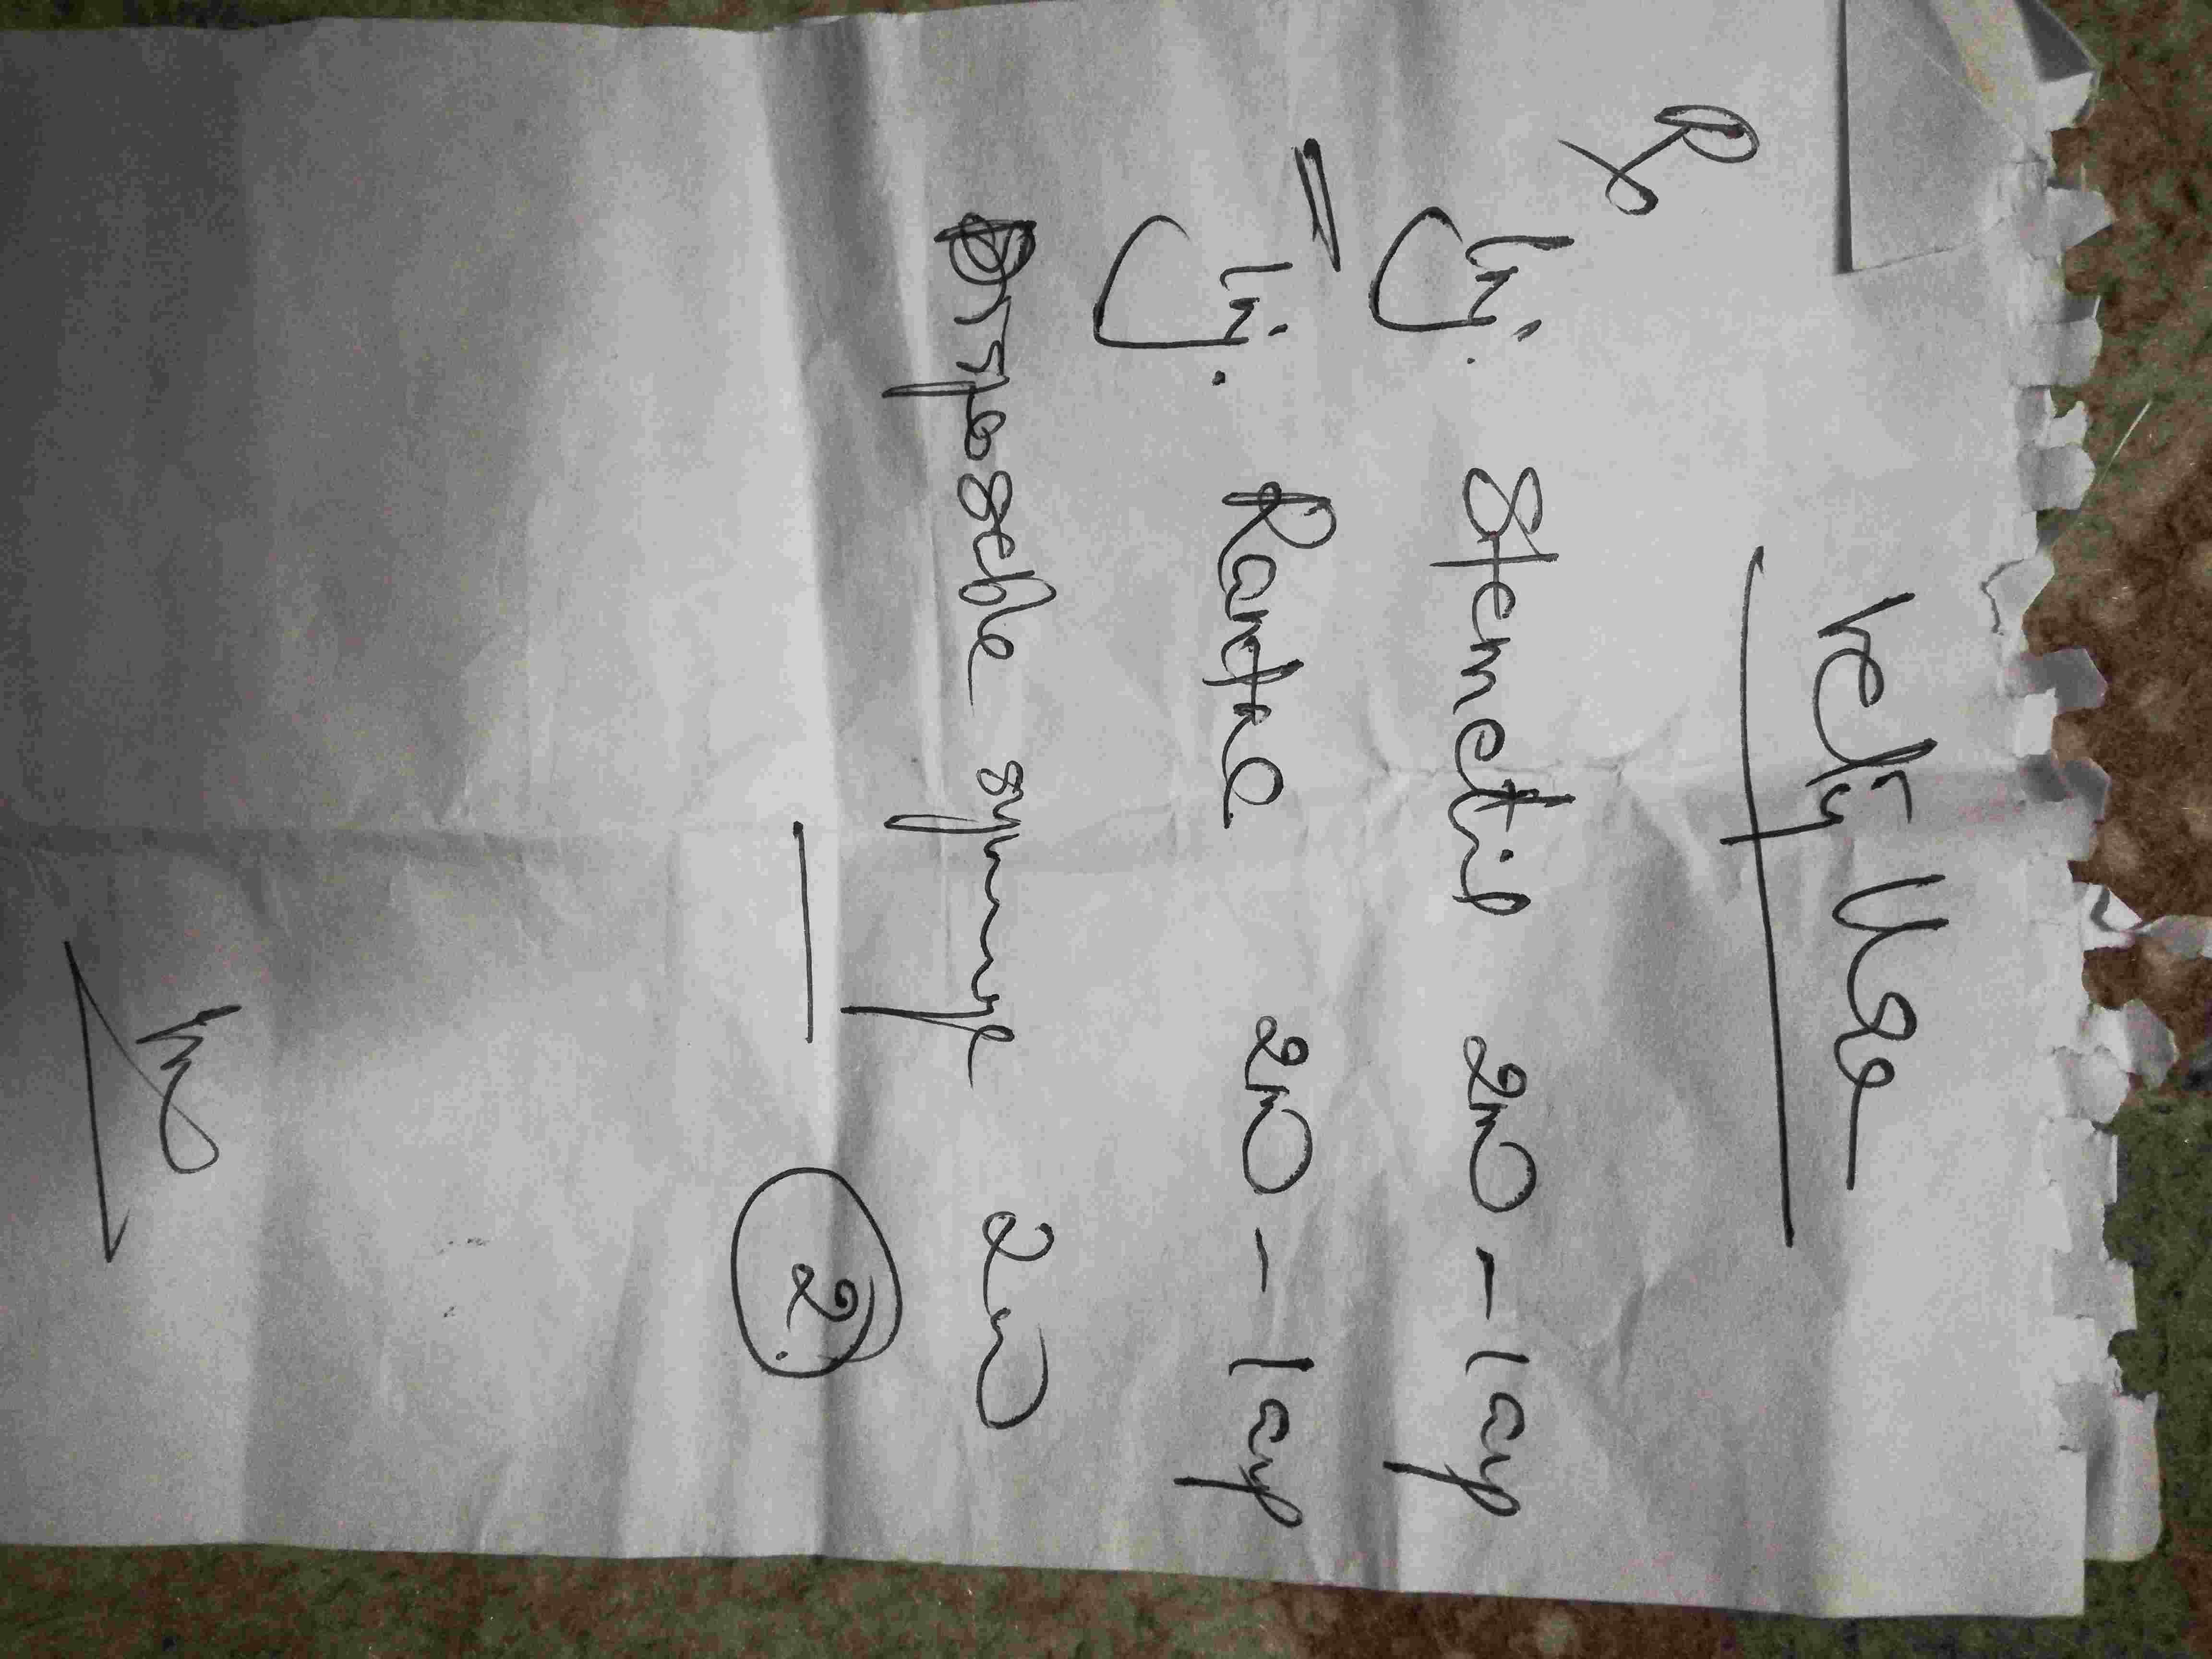 Rx
Inj. Stemetil 2ml - 1 amp
Inj. Rantac 2ml - 1 amp
Disposable syringe 2ml
2